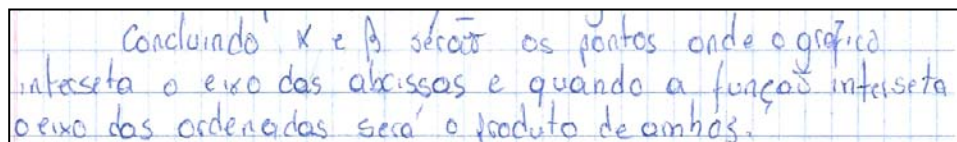 Concluindo α e β serão os pontos onde o gráfico
interseta o eixo das abcissas e quando a função interseta
o eixo das ordenadas será o produto de ambos.